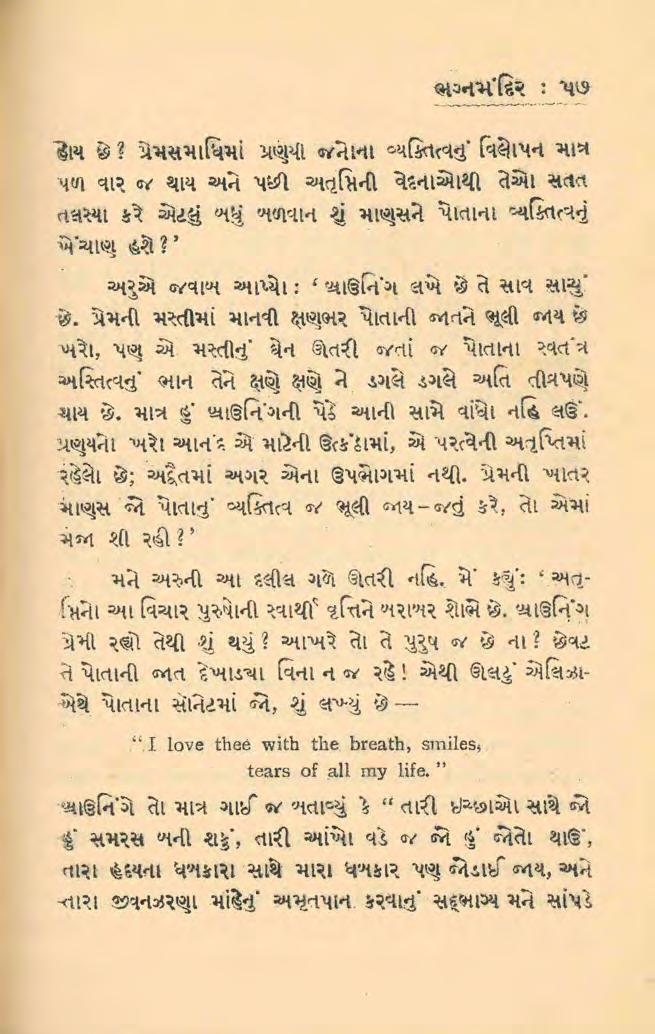 ભગ્નમંદિર : ૫૭
હોય છે? પ્રેમસમાધિમાં પ્રણયી જનોના વ્યક્તિત્વનું વિલોપન માત્ર
પળ વાર જ થાય અને પછી અતૃપ્તિની વેદનાઓથી તેઓ સતત
તલસ્યા કરે એટલું બધું બળવાન શું માણસને પોતાના વ્યક્તિત્વનું
ખેંચાણ હશે?’
અરુએ જવાબ આપ્યો : ‘બ્રાઉનિંગ લખે છે તે સાવ સાચું
છે. પ્રેમની મસ્તીમાં માનવી ક્ષણભર પોતાની જાતને ભૂલી જાય છે
ખરો, પણ એ મસ્તીનું ઘેન ઊતરી જતાં જ પોતાના સ્વતંત્ર
અસ્તિત્વનું ભાન તેને ક્ષણે ક્ષણે ને ડગલે ડગલે અતિ તીવ્રપણે
થાય છે. માત્ર હું બ્રાઉનિંગની પેઠે આની સામે વાંધો નહિ લઉં.
પ્રણયનો ખરો આનંદ એ માટેની ઉત્કંઠામાં, એ પરત્વેની અતૃપ્તિમાં
રહેલો છે; અદ્વૈતમાં અગર એના ઉપભોગમાં નથી. પ્રેમની ખાતર
માણસ જો પોતાનું વ્યક્તિત્વ જ ભૂલી જાય–જતું કરે, તો એમાં
મજા શી રહી?’
મને અરુની આ દલીલ ગળે ઊતરી નહિ. મેં કહ્યું: ‘અતૃ-
પ્તિનો આ વિચાર પુરુષોની સ્વાર્થી વૃત્તિને બરાબર શોભે છે. બ્રાઉનિંગ
પ્રેમી રહ્યો તેથી શું થયું? આખરે તો તે પુરુષ જ છે ના? છેવટ
તે પોતાની જાત દેખાડ્યા વિના ન જ રહે! એથી ઊલટું એલિઝા-
બેથે પોતાના સૉનેટમાં જો, શું લખ્યું છે —
“I love thee with the breath, smiles,
tears of all my life.”
બ્રાઉનિંગે તો માત્ર ગાઈ જ બતાવ્યું કે “તારી ઇચ્છાઓ સાથે જો
હું સમરસ બની શકું, તારી આંખો વડે જ જો હું જોતો થાઉં,
તારા હૃદયના ધબકારા સાથે મારા ધબકાર પણ જોડાઈ જાય, અને
તારા જીવનઝરણા માંહેનું અમૃતપાન કરવાનું સદ્ભાગ્ય મને સાંપડે